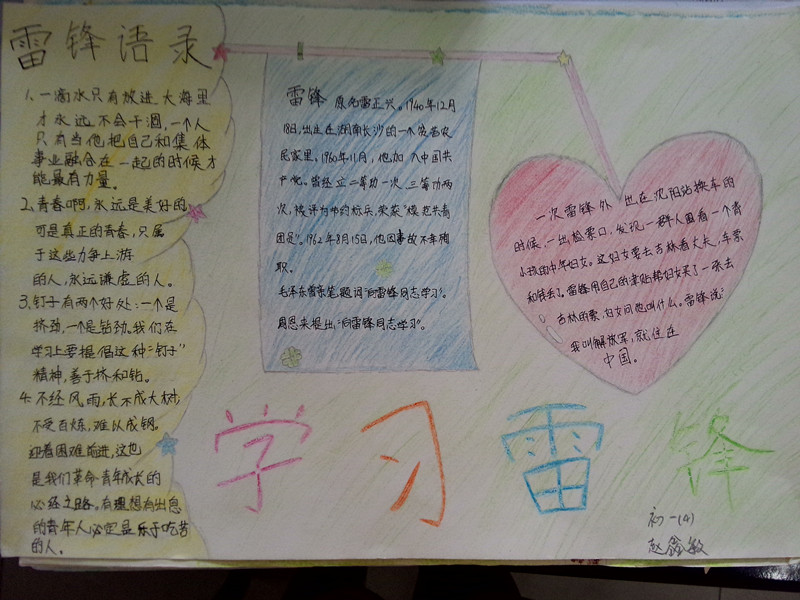 雷锋语录
1、一滴水只有放进大海里
才永远不会干涸,一个人
只有当他把自己和集体
事业融合在一起的时候才
能最有力量。
2、青春啊,永远是美好的
可是真正的青春,只属
于这些力争上游
的人,永远谦虚的人。
3、钉子有两个好处:一个是
挤劲,一个是钻劲。我们在
学习上要提倡这种"钉子"
精神,善于挤和钻。
4、不经风雨,长不成大树,
不受百炼,难以成钢。
迎着困难前进,这也
是我们革命青年成长的
必经之路。有理想有出息
的青年人必定是乐于吃苦
的人。
雷锋 原名雷正兴。1940年12月
18日,出生在湖南长沙的一个贫苦农
民家里。1960年11月,他加入中国共
产党。曾经立二等功一次 三等功两
次,被评为节约标兵,荣获"模范共青
团员"。1962年8月15日,他因事故不幸殉
职。
毛泽东亲笔题词"向雷锋同志学习"。
周恩来提出:"向雷锋同志学习"。
一次雷锋外出在沈阳站换车的
时候,一出检票口,发现一群人围着一个背
小孩的中年妇女。这妇女要去吉林看丈夫,车票
和钱丢了。雷锋用自己的津贴帮妇女买了一张去
吉林的票,妇女问他叫什么。雷锋说:
我叫解放军,就住在
中国。
学习雷锋
初一(4)
赵鑫敏